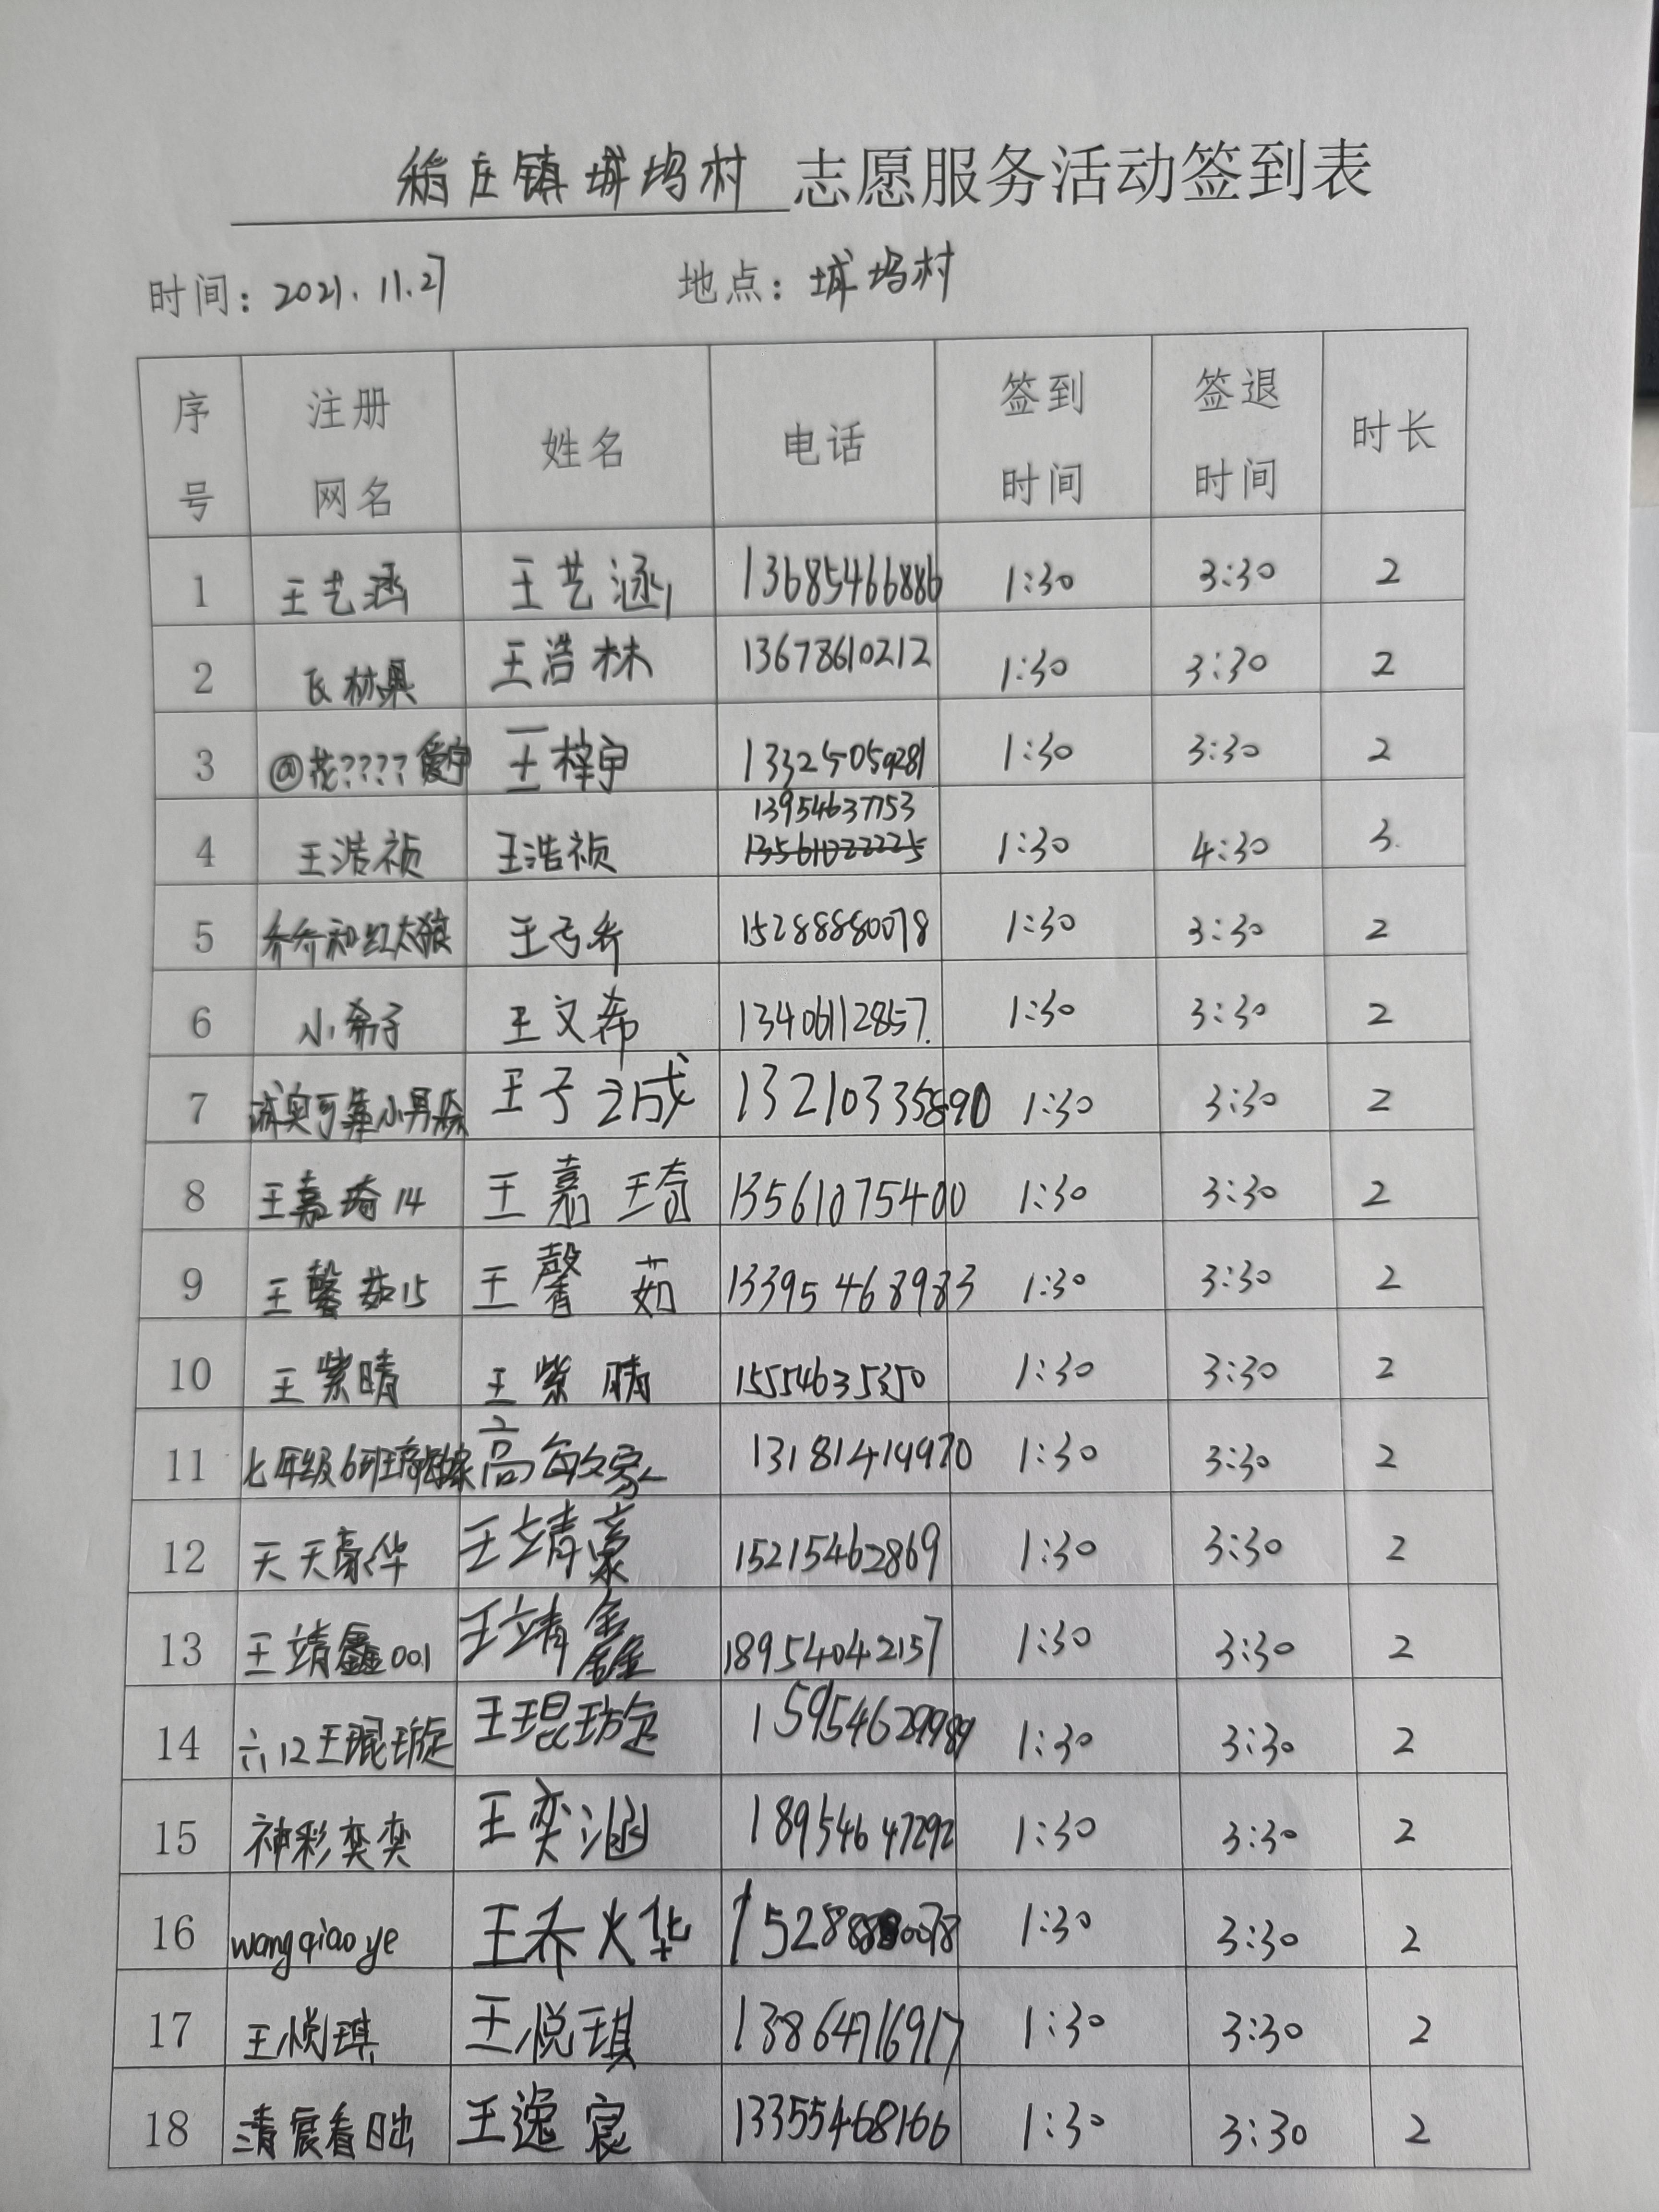 稻庄镇城坞村 志愿服务活动签到表
时间: 2021.11.27 地点: 城坞村
序号 注册网名 姓名 电话 签到时间 签退时间 时长
1 王艺涵 王艺涵 13685466886 1:30 3:30 2
2 飞林昊 王浩林 13678610212 1:30 3:30 2
3 @花????爱宇 王梓宇 13325059281 1:30 3:30 2
13954637753
4 王浩祯 王浩祯 13561022225 1:30 4:30 3
5 乔乔和红太狼 王弓乔 15288880078 1:30 3:30 2
6 小希子 王文希 13406112857. 1:30 3:30 2
7 诚实可靠小男孩 王子诚 13210335890 1:30 3:30 2
8 王嘉琦14 王嘉琦 13561075400 1:30 3:30 2
9 王馨茹15 王馨茹 13395468983 1:30 3:30 2
10 王紫晴 王紫晴 15554635350 1:30 3:30 2
11 七年级6班高敏家 高敏家 13181414970 1:30 3:30 2
12 天天豪华 王靖豪 15215462869 1:30 3:30 2
13 王靖鑫001 王靖鑫 18954042157 1:30 3:30 2
14 六、12王琨璇 王琨璇 15954629989 1:30 3:30 2
15 神彩奕奕 王奕涵 18954647292 1:30 3:30 2
16 wangqiaoye 王乔烨 15288880078 1:30 3:30 2
17 王悦琪 王悦琪 13864716917 1:30 3:30 2
18 清宸看日出 王逸宸 13355468166 1:30 3:30 2